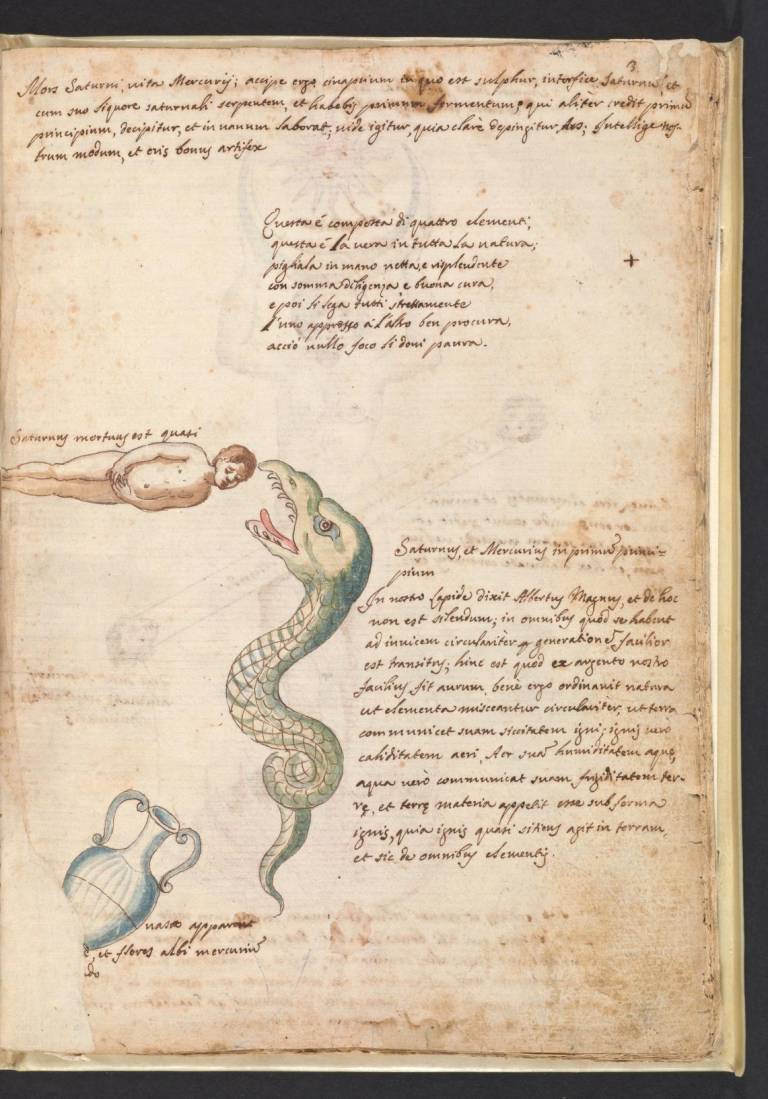 3
Mors Saturni, vita Mercurij; accipe ergo cinaprium in quo est sulphur, interfice Saturnũ, et
cum suo liquore saturnali serpentem, et habebis primum fermentum; qui aliter credit primũ
principium, decipitur, et in uanum laborat; uide igitur, quia clarè depingitur Ars; Intellige nos-
trum modum, et eris bonus artifex
Questa è composta di quattro elementi;
questa è la uera in tutta la natura;
pigliala in mano netta, e risplendente
con somma diligenza e buona cura,
e poi si lega tutti strettamente
l'uno appresso à l'altro ben procura,
acciò nullo foco li doni paura.
+
Saturnus mortuus est quasi
Saturnus, et Mercurius in primũ princi=
pium
In nostro lapide dixit Albertus Magnus, et de hoc
non est silendum; in omnibus quod se habent
ad inuicem circulariter generatione facilior
est transitus; hinc est quod ex argento nostro
facilius fit aurum, benè ergo ordinauit natura
ut elementa misceantur circulariter, ut terra
communicet suam siccitatem igni; ignis uerò
caliditatem aeri, Aer suã humiditatem aquę,
aqua uerò communicat suam frigiditatem ter-
rę, et terrę materia appetit esse sub forma
ignis, quia ignis quasi sitiens agit in terram,
et sic de omnibus elementis.
uase apparent
et flores albi mercuriũ
do